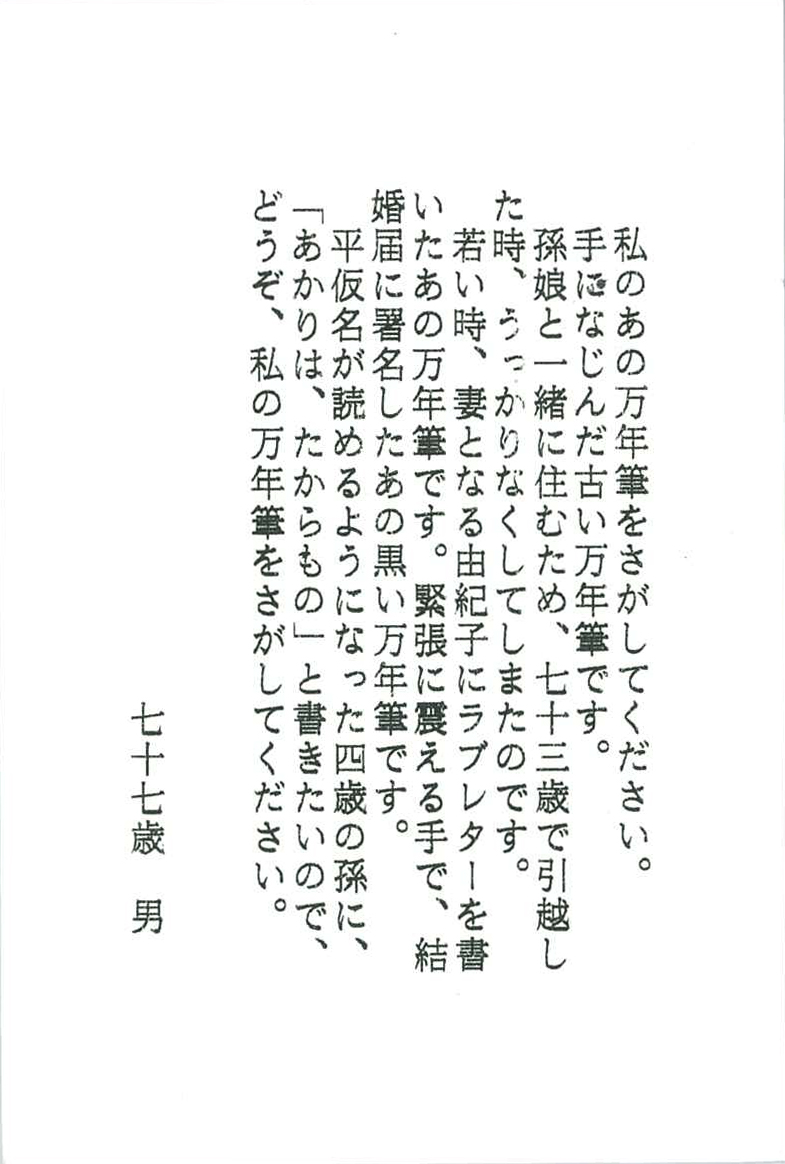 私のあの万年筆をさがしてください。
手になじんだ古い万年筆です。
孫娘と一緒に住むため、七十三歳で引越し
た時、うっかりなくしてしまたのです。
若い時、妻となる由紀子にラブレターを書
いたあの万年筆です。緊張に震える手で、結
婚届に署名したあの黒い万年筆です。
平仮名が読めるようになった四歳の孫に、
「あかりは、たからもの」と書きたいので、
どうぞ、私の万年筆をさがしてください。
七十七歳　男